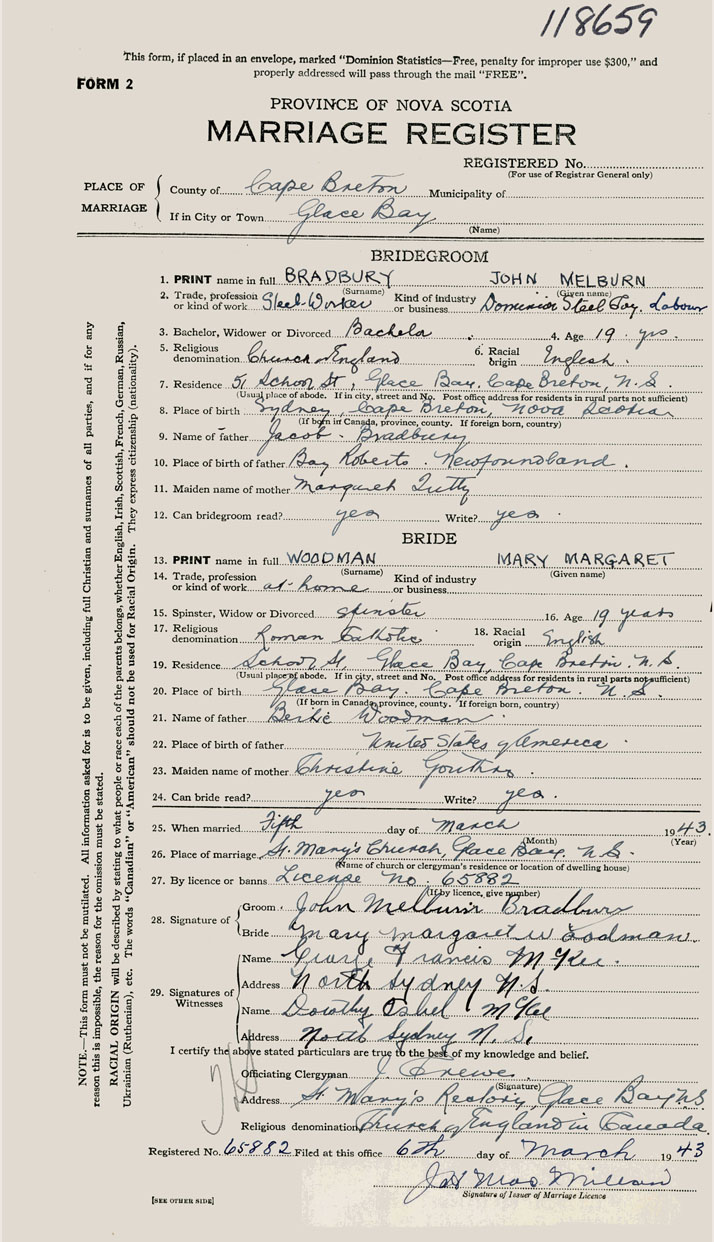 118659
This form, if placed in an envelope, marked "Dominion Statistics—Free, penalty for improper use $300," and
properly addressed will pass through the mail "FREE".
FORM 2
PROVINCE OF NOVA SCOTIA
MARRIAGE REGISTER
REGISTERED No.
(For use of Registrar General only)
PLACE OF MARRIAGE
County of Cape Breton Municipality of
If in City or Town Glace Bay
(Name)
BRIDEGROOM
1. PRINT name in full BRADBURY JOHN MELBURN
(Surname) (Given name)
2. Trade, profession or kind of work Steel-Worker Kind of industry or business Dominion Steel Labour
3. Bachelor, Widower or Divorced Bachelor 4. Age 19 yrs.
5. Religious denomination Church of England 6. Racial origin English
7. Residence 51 School St, Glace Bay, Cape Breton, N.S.
(Usual place of abode. If in city, street and No. Post office address for residents in rural parts not sufficient)
8. Place of birth Sydney, Cape Breton, Nova Scotia
(If born in Canada, province, county. If foreign born, country)
9. Name of father Jacob Bradbury
10. Place of birth of father Bay Roberts Newfoundland.
11. Maiden name of mother Margaret Tutty
12. Can bridegroom read? yes Write? yes
BRIDE
13. PRINT name in full WOODMAN MARY MARGARET
(Surname) (Given name)
14. Trade, profession or kind of work at home Kind of industry or business
15. Spinster, Widow or Divorced spinster 16. Age 19 years
17. Religious denomination Roman Catholic 18. Racial origin English
19. Residence School St. Glace Bay, Cape Breton. N.S.
(Usual place of abode. If in city, street and No. Post office address for residents in rural parts not sufficient)
20. Place of birth Glace Bay. Cape Breton. N.S.
(If born in Canada, province, county. If foreign born, country)
21. Name of father Woodman
22. Place of birth of father United States of America
23. Maiden name of mother Christine Gouthro
24. Can bride read? yes Write? yes.
25. When married Fifth day of March 1943.
(Month) (Year)
26. Place of marriage St. Mary's Church, Glace Bay. N.S.
(Name of church or clergyman's residence or location of dwelling house)
27. By licence or banns License no. 65882
(If by licence, give number)
28. Signature of
Groom John Melburn Bradbury
Bride Mary Margaret Woodman
29. Signatures of Witnesses
Name George Francis McKee
Address North Sydney N.S.
Name Dorothy McKee
Address North Sydney N.S.
I certify the above stated particulars are true to the best of my knowledge and belief.
Officiating Clergyman J. Crewe
(Signature)
Address St. Mary's Rectory, Glace Bay N.S.
Religious denomination Church of England in Canada
Registered No. 65882 Filed at this office 6th day of March 1943
Signature of Issuer of Marriage Licence
[SEE OTHER SIDE]
NOTE.—This form must not be mutilated. All information asked for is to be given, including full Christian and surnames of all parties, and if for any
reason this is impossible, the reason for the omission must be stated.
RACIAL ORIGIN will be described by stating to what people or race each of the parents belongs, whether English, Irish, Scottish, French, German, Russian,
Ukrainian (Ruthenian), etc. The words "Canadian" or "American" should not be used for Racial Origin. They express citizenship (nationality).